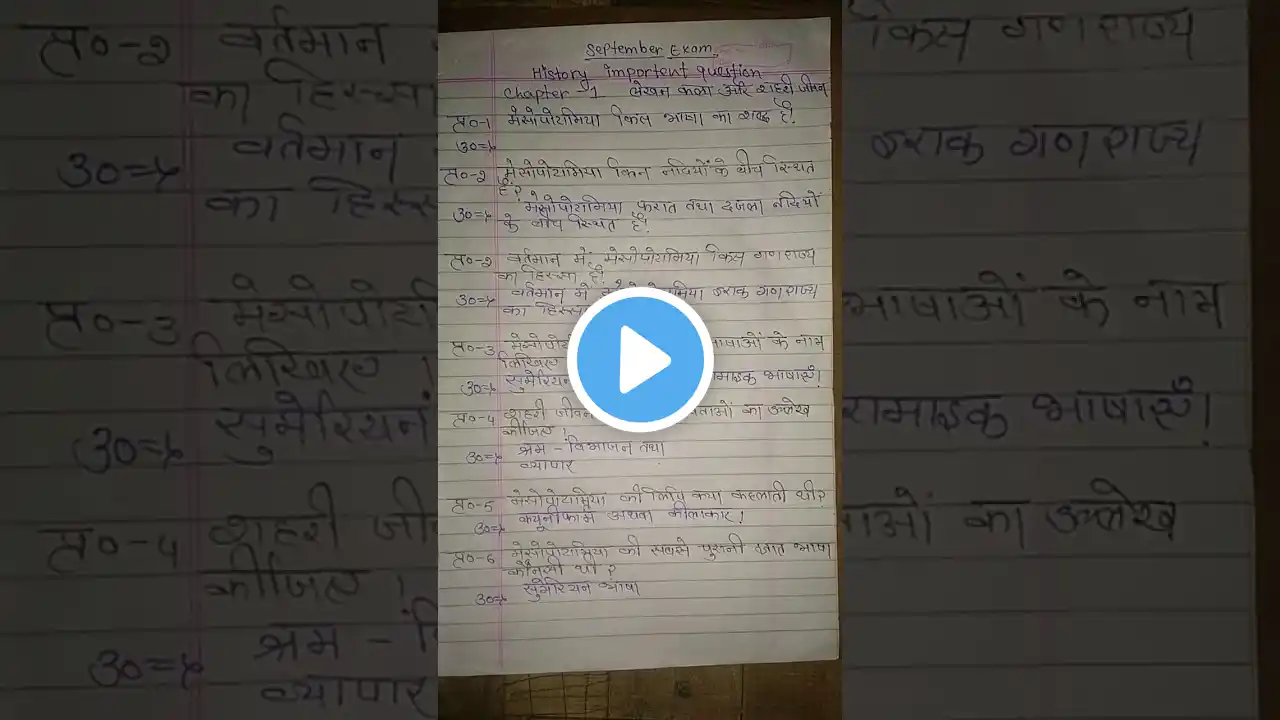 September Exam
History importent question
Chapter -1 लेखन कला और शहरी जीवन
प्र०-1 मेसोपोटामिया किस भाषा का शब्द है?
उ०=>
प्र०-2 मेसोपोटामिया किन नदियों के बीच स्थित
है?
उ०=> मेसोपोटामिया फरात तथा दजला नदियों
के बीच स्थित है?
प्र०-2 वर्तमान में मेसोपोटामिया किस गणराज्य
का हिस्सा है?
उ०=> वर्तमान में इराक गणराज्य
का हिस्सा
प्र०-3 भाषाओं के नाम
लिखिए
उ०=> सुमेरियन भाषाएँ।
प्र०-4 शहरी का उल्लेख
कीजिए।
उ०=> श्रम - विभाजन तथा
व्यापार
प्र०-5 मेसोपोटामिया की लिपि क्या कहलाती थी?
उ०=> क्यूनीफार्म अथवा कीलाकार।
प्र०-6 मेसोपोटामिया की सबसे पुरानी ज्ञात भाषा
कौनसी थी?
उ०=> सुमेरियन भाषा